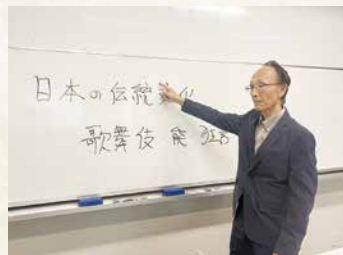 日本の伝統
歌舞伎 能 狂言